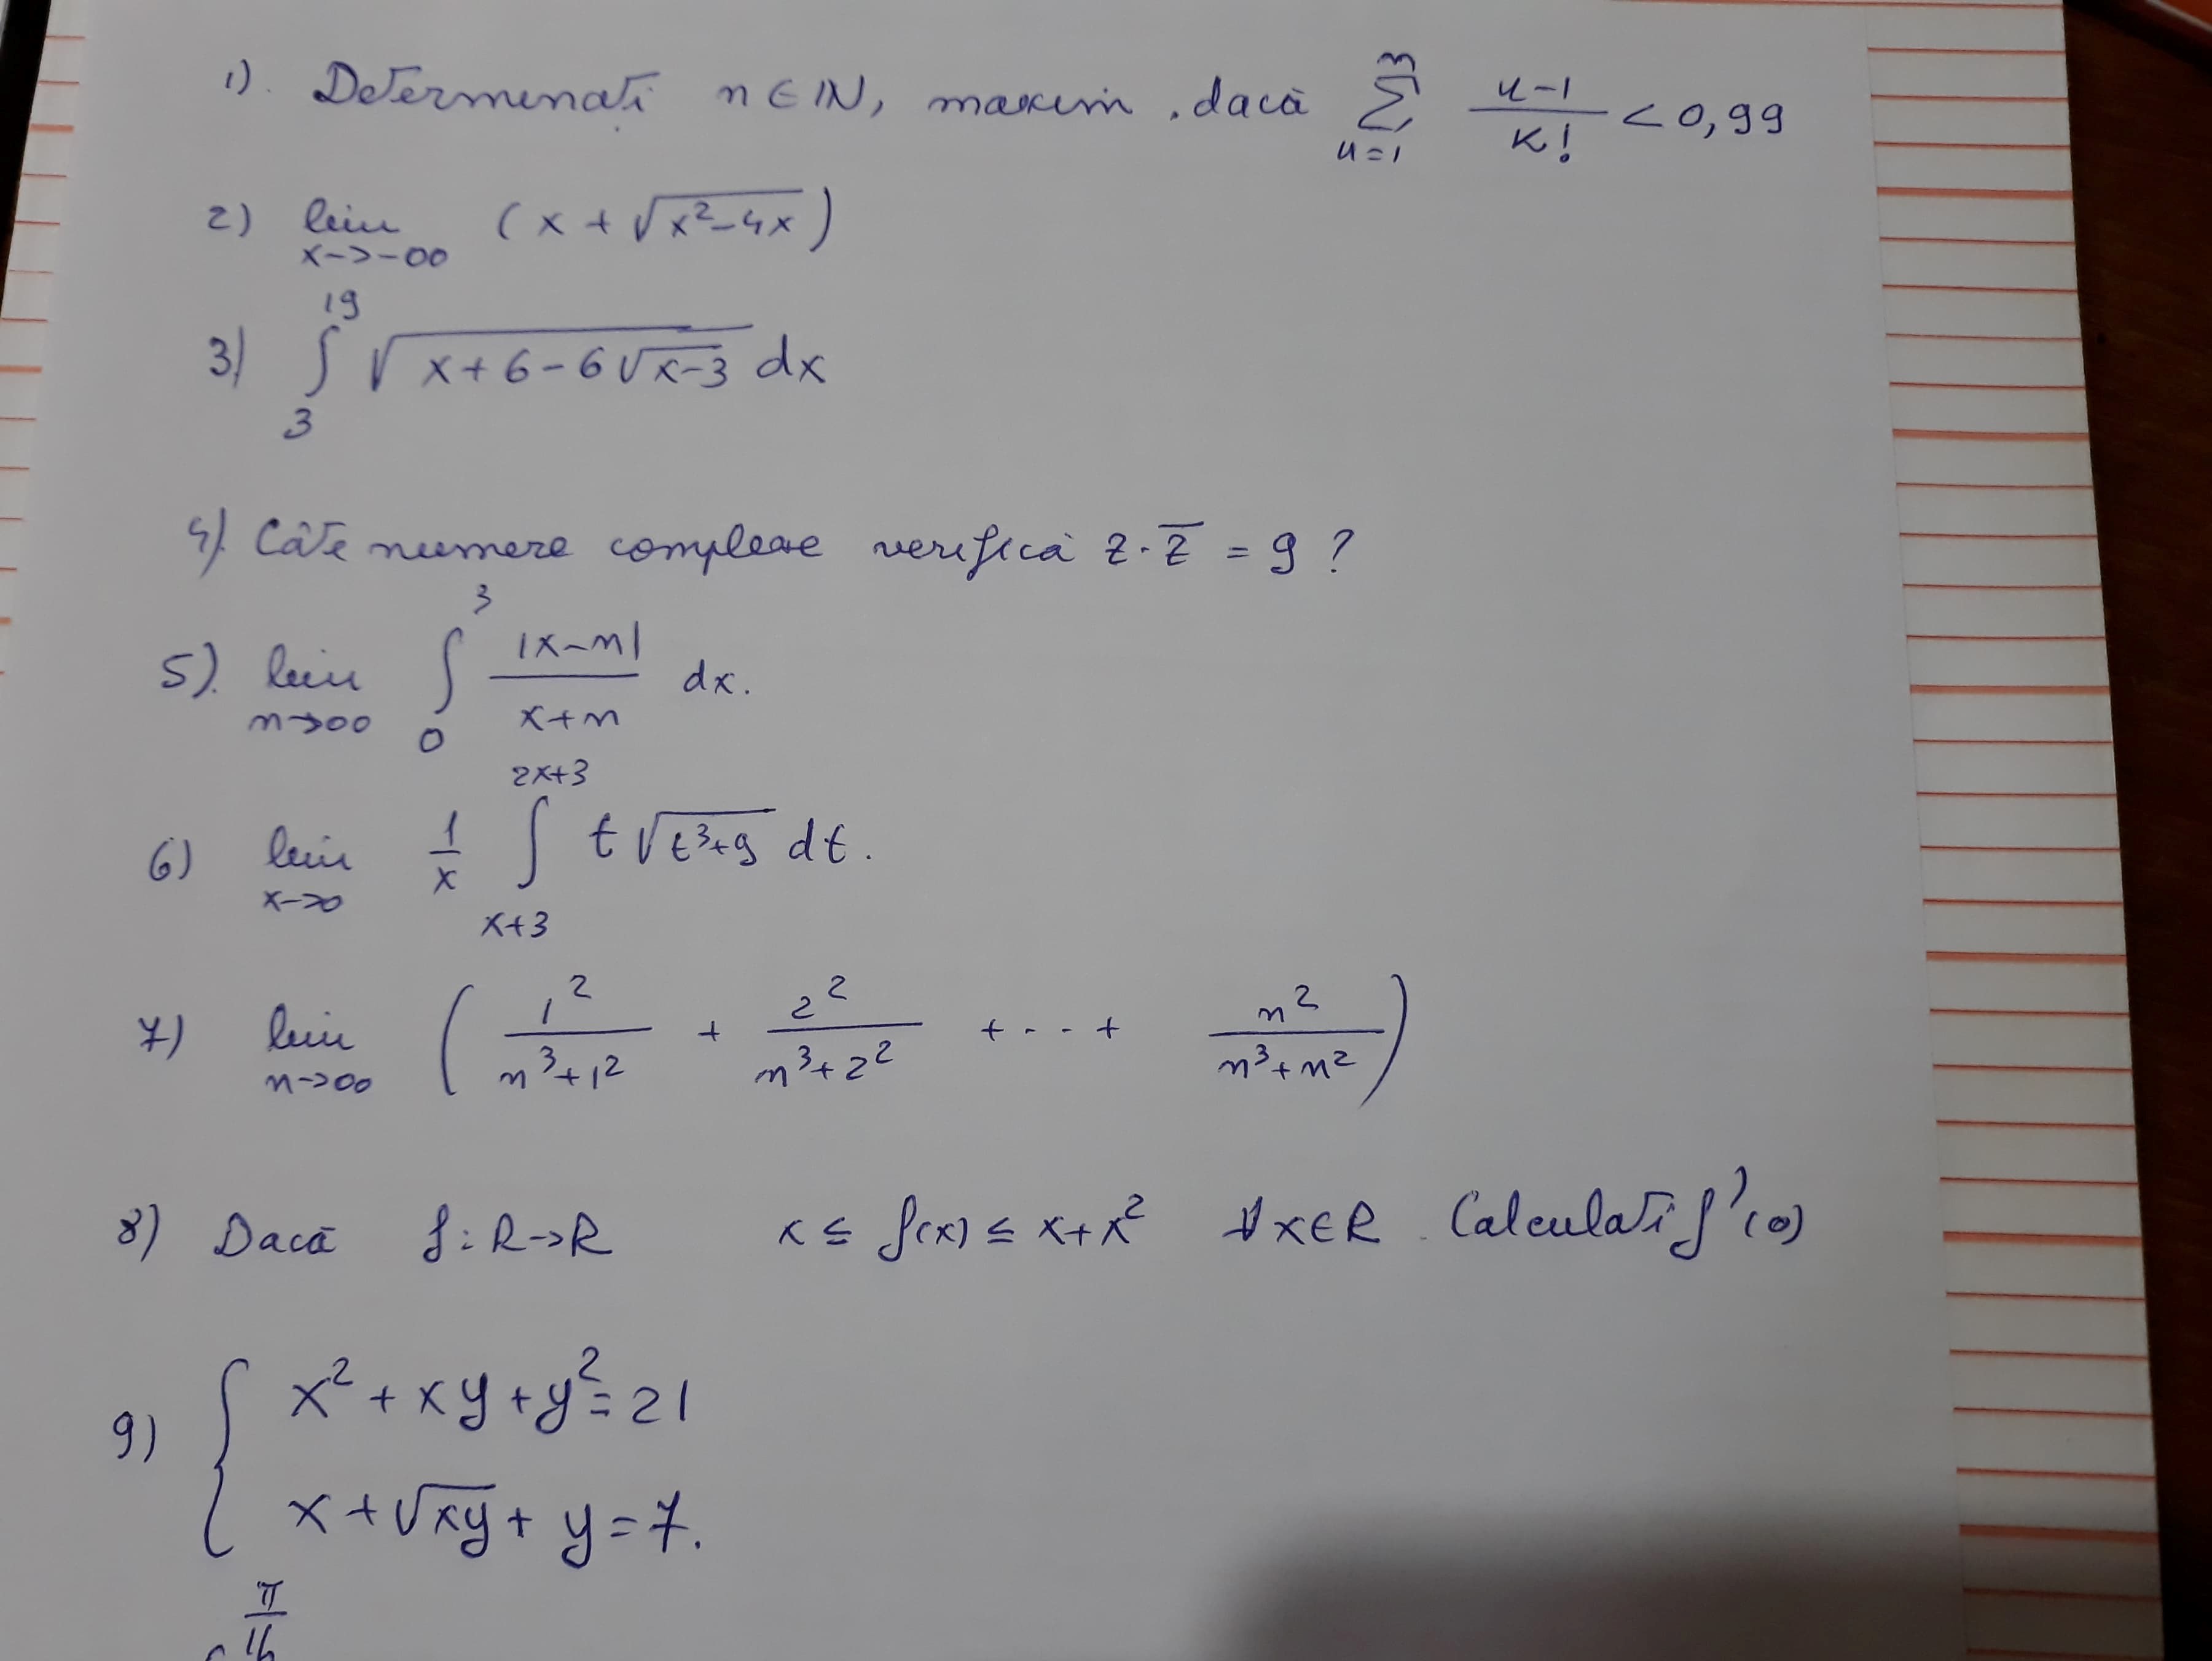 1). Determinați n∈ℕ, maxim. dacă $\sum_{k=1}^{n} \frac{k-1}{k!} < 0,99$
2) $\lim_{x \to -\infty} (x + \sqrt{x^2-4x})$
3) $\int_{3}^{19} \sqrt{x+6-6\sqrt{x-3}} \, dx$
4). Câte numere complexe verifică $z \cdot \overline{z} = 9$ ?
5). $\lim_{n \to \infty} \int_{0}^{3} \frac{|x-n|}{x+n} \, dx.$
6) $\lim_{x \to 0} \frac{1}{x} \int_{x+3}^{2x+3} t\sqrt{t^3+9} \, dt.$
7) $\lim_{n \to \infty} \left( \frac{1^2}{n^3+1^2} + \frac{2^2}{n^3+2^2} + \dots + \frac{n^2}{n^3+n^2} \right)$
8) Dacă f:R→R x ≤ f(x) ≤ x+x² ∀x∈R. Calculați f'(0)
9) { x² + xy + y² = 21
x + √xy + y = 7.
$\frac{\pi}{16}$